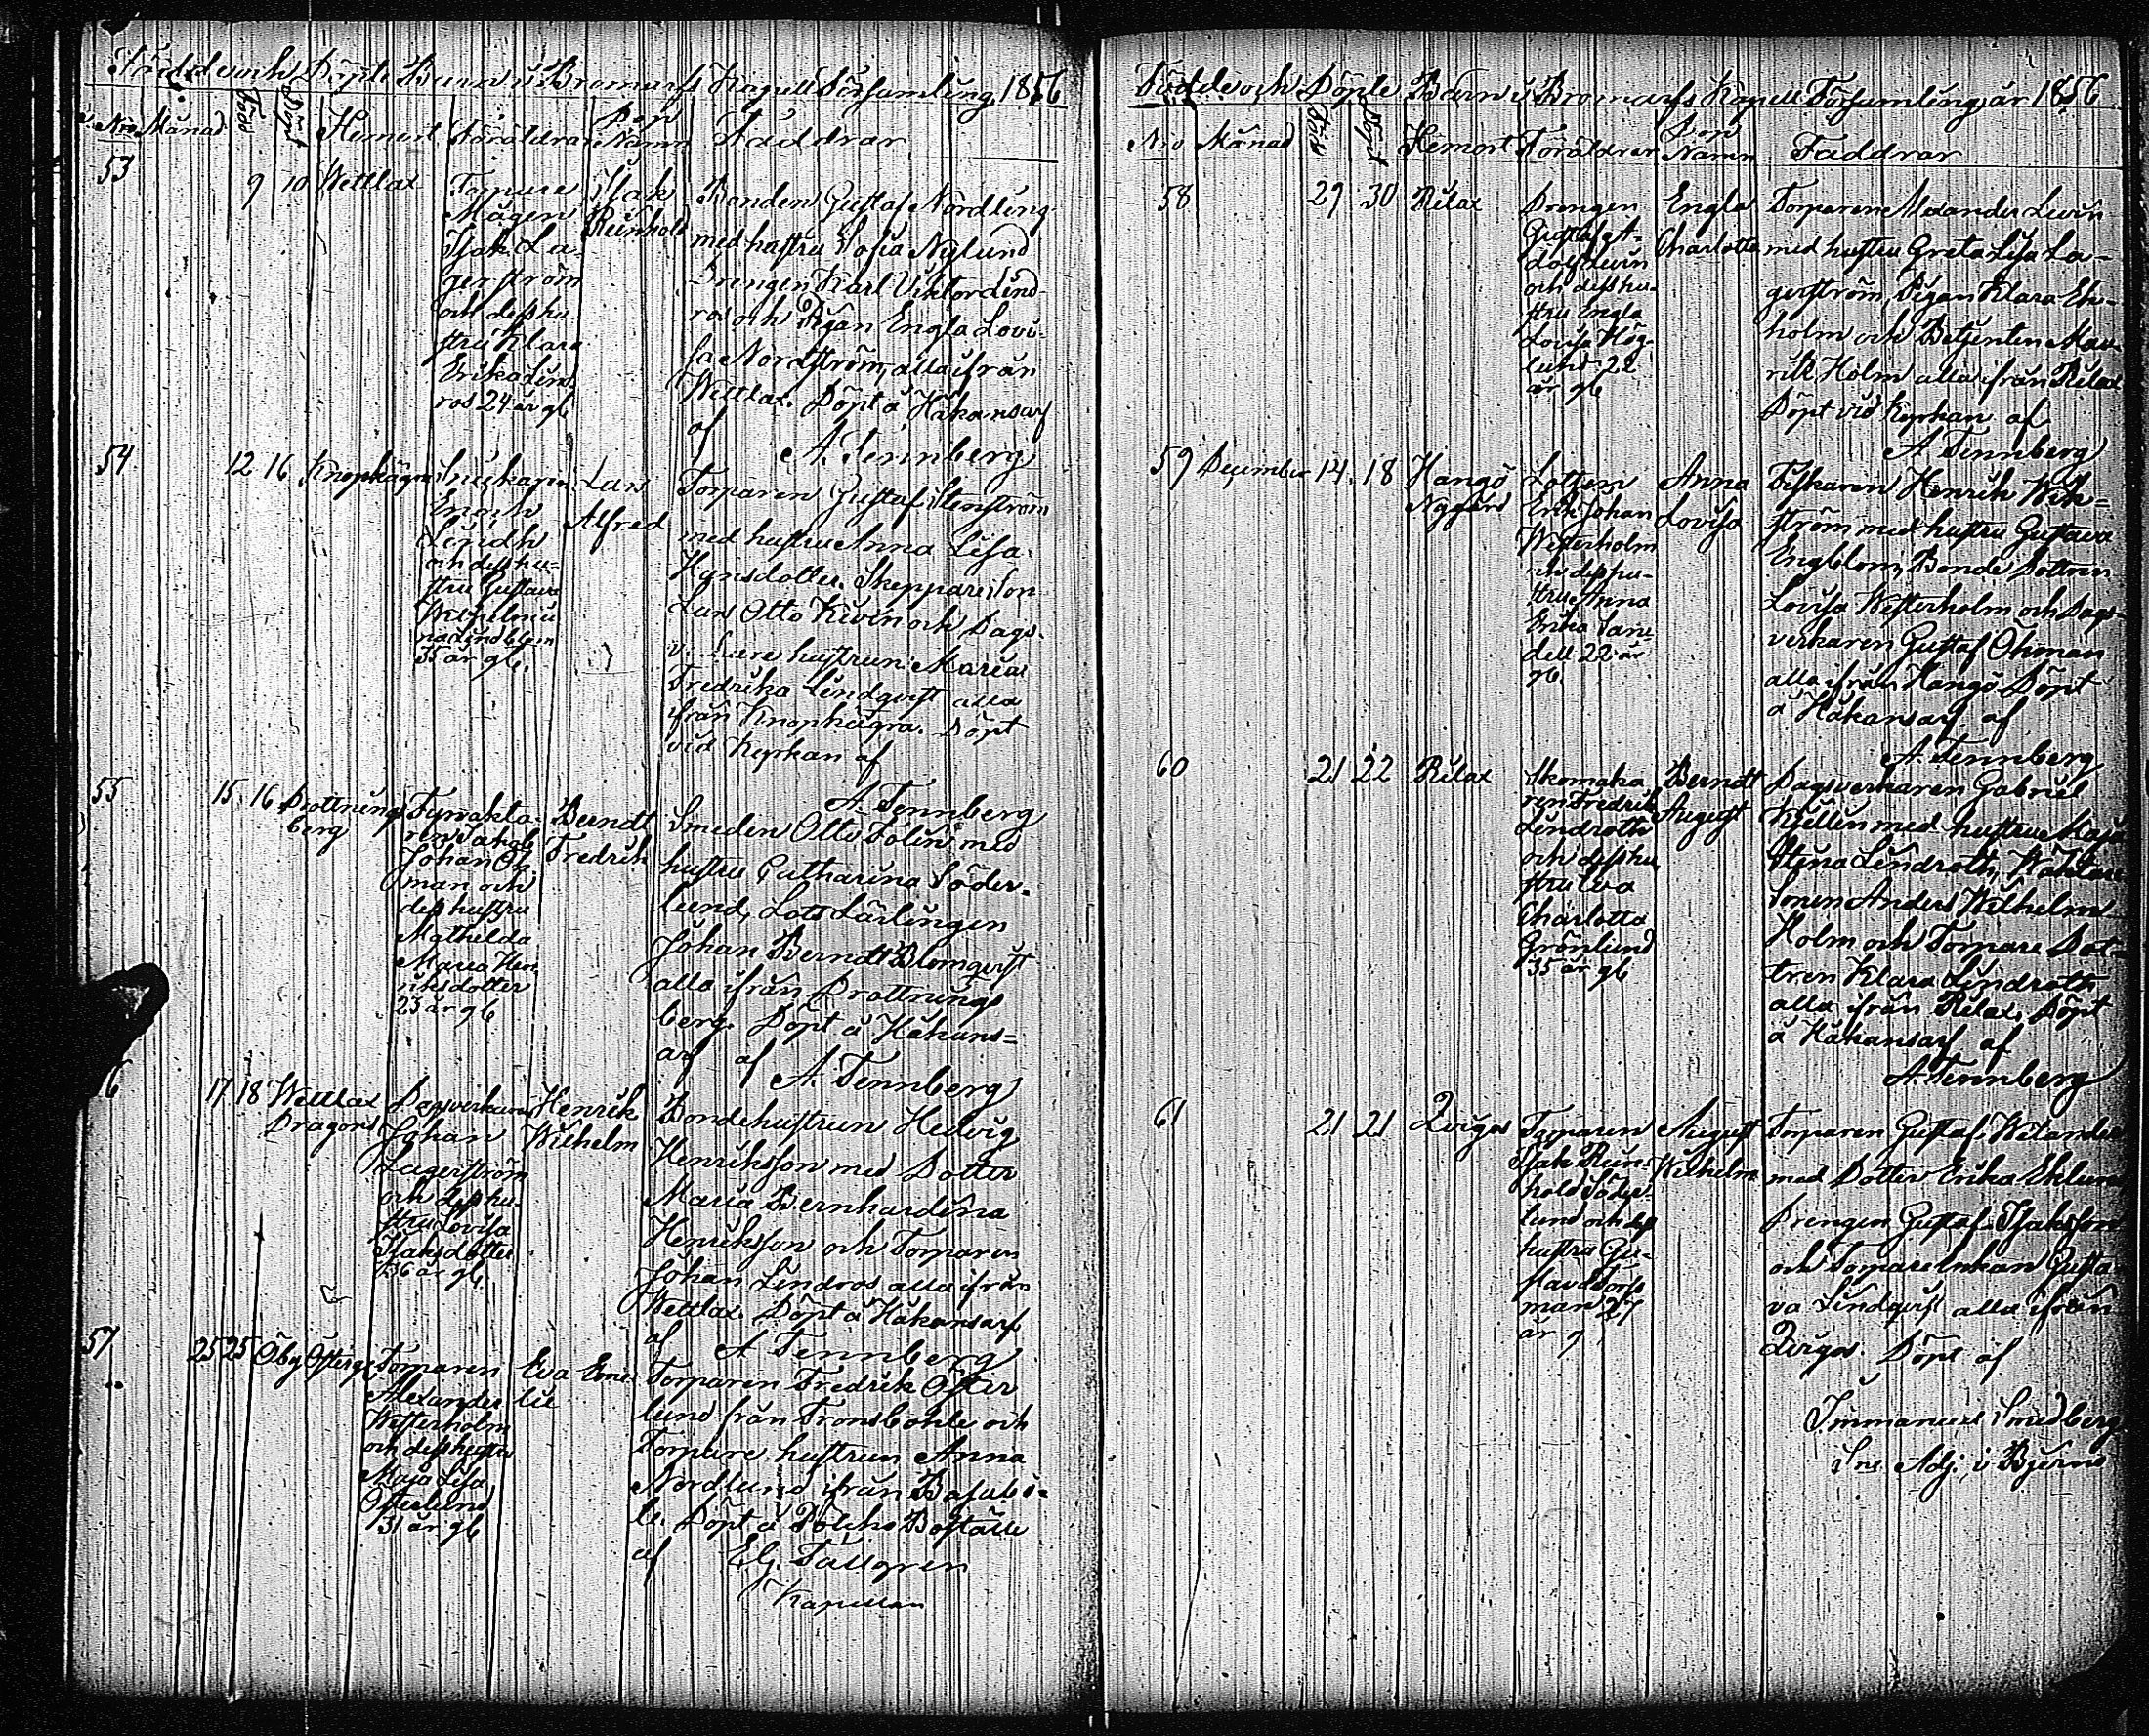 Födde och Döpte Barn i Bromarfs Kapell Församling, 1856
Nro Månad Född Döpt Hemort Föräldrar Dop Namn Faddrar
53 9 10 Wettlax
Torpare
Mågen
Isak La-
gerström
och desshu
stru Klara
Erika Lind-
ros 24 år gl
Isak
Reinhold
Bonden Gustaf Nordling
med hustru Sofia Nylund
Drengen Karl Viktor Lind-
ros och Pigan Engla Lovi-
sa Nordström, alla ifrån
Wettlax. Döpt å Håkansarf
af
A. Tennberg
54 12 16 Knophägra
Enoch
Lindh
och desshu-
stru Gustava
Wilhelmi
na Lindblom
35 år gl.
Lars
Alfred
Torparen Gustaf Stenström
med hustru Anna Lisa
Skeppare Son
Lars Otto Kivin och Dags-
v. hustrun Maria
Fredrika Lindqvist alla
ifrån Knophägra. Döpt
vid Kyrkan af
A. Tennberg
55 15 16 Drottning
berg
Fyrvakta-
ren Jakob
Johan Öh
man och
dess hustru
Mathelda
Maria Hen
riksdotter
23 år gl
Berndt
Fredrik
Smeden Otto Tolin med
hustru Catharina Söder-
lund, Lots Lärlingen
Johan Berndt Blomqvist
alla ifrån Drottnings
berg. Döpt å Håkans=
arf af
A. Tennberg
17 18 Wettlax
Dragons
Dagsverkaren
Johan
Lagerström
och desshu-
stru Lovisa
Isaksdotter
36 år gl.
Henrik
Wilhelm
Bondehustrun Hedvig
Henriksson med Dotter
Maria Bernhardina
Henriksson och Torparen
Johan Lindros alla ifrån
Wettlax. Döpt å Håkansarf
af A Tennberg
57 25 25 Öby
Torparen
Alexander
Westerholm
och desshustru
Maja Lisa
Österlund
31 år gl
Eva Emi-
lie
Torparen Fredrik Öster
lund från Tronsbohle och
Torpare hustrun Anna
Nordlund ifrån Basabö-
le. Döpt å Boställe
af E.G. Tallgren
Kapellan
Födde och Döpte Barn i Bromarfs Kapell Församling år 1856
Nro Månad Född Döpt Hemort Föräldrar Dop Namn Faddrar
58 29 30 Rilax
Drengen
Gustaf A-
dolf Levin
och desshu-
stru Engla
Lovisa Hög-
lund 22
år gl
Engla
Charlotta
Torparen Alexander Levin
med hustru Greta Lisa La-
gerström, Pigan Klara Ek-
holm och Betjenten Mau-
ritz Holm alla ifrån Rilax
Döpt vid Kyrkan af
A Tennberg
59 December 14 18 Hangö
Nygård
Lotsen
Erik Johan
Westerholm
och desshu-
stru Anna
Erika San-
dell 22 år
gl.
Anna
Lovisa
Fiskaren Henrik Wik=
ström med hustru Gustava
Engblom, Bonde Dottren
Lovisa Westerholm och Dags-
verkaren Gustaf Öhman
alla ifrån Hangö Döpt
å Håkansarf af
A. Tennberg
60 21 22 Rilax
Skomaka
ren Fredrik
Lindroth
och desshu
stru Eva
Charlotta
Grönlund
35 år gl
Berndt
August
Dagsverkaren Gabriel
Kjellin med hustru Maja
Stina Lindroth, Waktare
Sonen Anders Wilhelm
Holm och Torpare Dot-
tren Klara Lindroth
alla ifrån Rilax. Döpt
å Håkansarf af
A. Tennberg
61 21 21
Torparen
Isak Rein-
hold Söder-
lund och dess
hustru Gu-
stava Tors
man 27
år g
August
Wilhelm
Torparen Gustaf Welander
med Dotter Erika Eklund
Drengen Gustaf Isaksson
och Torpare Enkan Gusta-
va Lindqvist alla ifrån
Döpt af
Immanuel Smedberg
Adj. i Bjerno